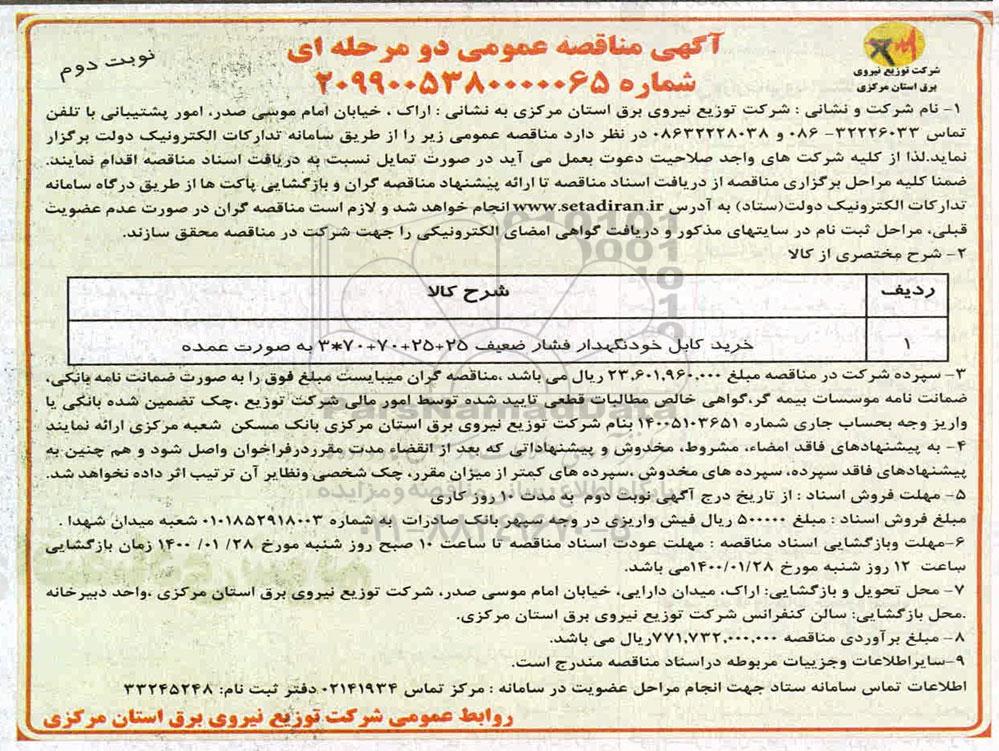 آگهی مناقصه عمومی دو مرحله ای
شماره ۲۰۹۹۰۰۵۳۸۰۰۰۰۰۶۵
نوبت دوم
شرکت توزیع نیروی
برق استان مرکزی
۱- نام شرکت و نشانی : شرکت توزیع نیروی برق استان مرکزی به نشانی : اراک ، خیابان امام موسی صدر، امور پشتیبانی با تلفن
تماس ۳۲۲۲۶۰۳۳- ۰۸۶ و ۰۸۶۳۲۲۲۸۰۳۸ در نظر دارد مناقصه عمومی زیر را از طریق سامانه تدارکات الکترونیک دولت برگزار
نماید.لذا از کلیه شرکت های واجد صلاحیت دعوت بعمل می آید در صورت تمایل نسبت به دریافت اسناد مناقصه اقدام نمایند.
ضمنا کلیه مراحل برگزاری مناقصه از دریافت اسناد مناقصه تا ارائه پیشنهاد مناقصه گران و بازگشایی پاکت ها از طریق درگاه سامانه
تدارکات الکترونیک دولت(ستاد) به آدرس www.setadiran.ir انجام خواهد شد و لازم است مناقصه گران در صورت عدم عضویت
قبلی، مراحل ثبت نام در سایتهای مذکور و دریافت گواهی امضای الکترونیکی را جهت شرکت در مناقصه محقق سازند.
۲- شرح مختصری از کالا
ردیف شرح کالا
۱ خرید کابل خودنگهدار فشار ضعیف ۲۵+۲۵+۷۰+۷۰*۳ به صورت عمده
۳- سپرده شرکت در مناقصه مبلغ ۲۳,۶۰۱,۹۶۰,۰۰۰ ریال می باشد ،مناقصه گران میبایست مبلغ فوق را به صورت ضمانت نامه بانکی،
ضمانت نامه موسسات بیمه گر،گواهی خالص مطالبات قطعی تایید شده توسط امور مالی شرکت توزیع ،چک تضمین شده بانکی یا
واریز وجه بحساب جاری شماره ۱۴۰۰۵۱۰۳۶۵۱ بنام شرکت توزیع نیروی برق استان مرکزی بانک مسکن شعبه مرکزی ارائه نمایند
۴- به پیشنهادهای فاقد امضاء، مشروط، مخدوش و پیشنهاداتی که بعد از انقضاء مدت مقرردرفراخوان واصل شود و هم چنین به
پیشنهادهای فاقد سپرده، سپرده های مخدوش ،سپرده های کمتر از میزان مقرر، چک شخصی ونظایر آن ترتیب اثر داده نخواهد شد.
۵- مهلت فروش اسناد : از تاریخ درج آگهی نوبت دوم به مدت ۱۰ روز کاری
مبلغ فروش اسناد : مبلغ ۵۰۰۰۰۰ ریال فیش واریزی در وجه سپهر بانک صادرات به شماره ۰۱۰۱۸۵۲۹۱۸۰۰۳ شعبه میدان شهدا .
۶-مهلت وبازگشایی اسناد مناقصه : مهلت عودت اسناد مناقصه تا ساعت ۱۰ صبح روز شنبه مورخ ۲۸/ ۰۱/ ۱۴۰۰ زمان بازگشایی
ساعت ۱۲ روز شنبه مورخ ۱۴۰۰/۰۱/۲۸می باشد.
۷- محل تحویل و بازگشایی: اراک، میدان دارایی، خیابان امام موسی صدر، شرکت توزیع نیروی برق استان مرکزی ،واحد دبیرخانه
.محل بازگشایی: سالن کنفرانس شرکت توزیع نیروی برق استان مرکزی.
۸- مبلغ برآوردی مناقصه ۷۷۱,۷۳۲,۰۰۰,۰۰۰ریال می باشد.
۹-سایراطلاعات وجزییات مربوطه دراسناد مناقصه مندرج است.
اطلاعات تماس سامانه ستاد جهت انجام مراحل عضویت در سامانه : مرکز تماس ۰۲۱۴۱۹۳۴ دفتر ثبت نام: ۳۳۲۴۵۲۴۸
روابط عمومی شرکت توزیع نیروی برق استان مرکزی
ParsNamadData
پایگاه اطلاع رسانی مناقصه و مزایده
۰۲۱-۸۸۳۴۹۶۷۰-۵